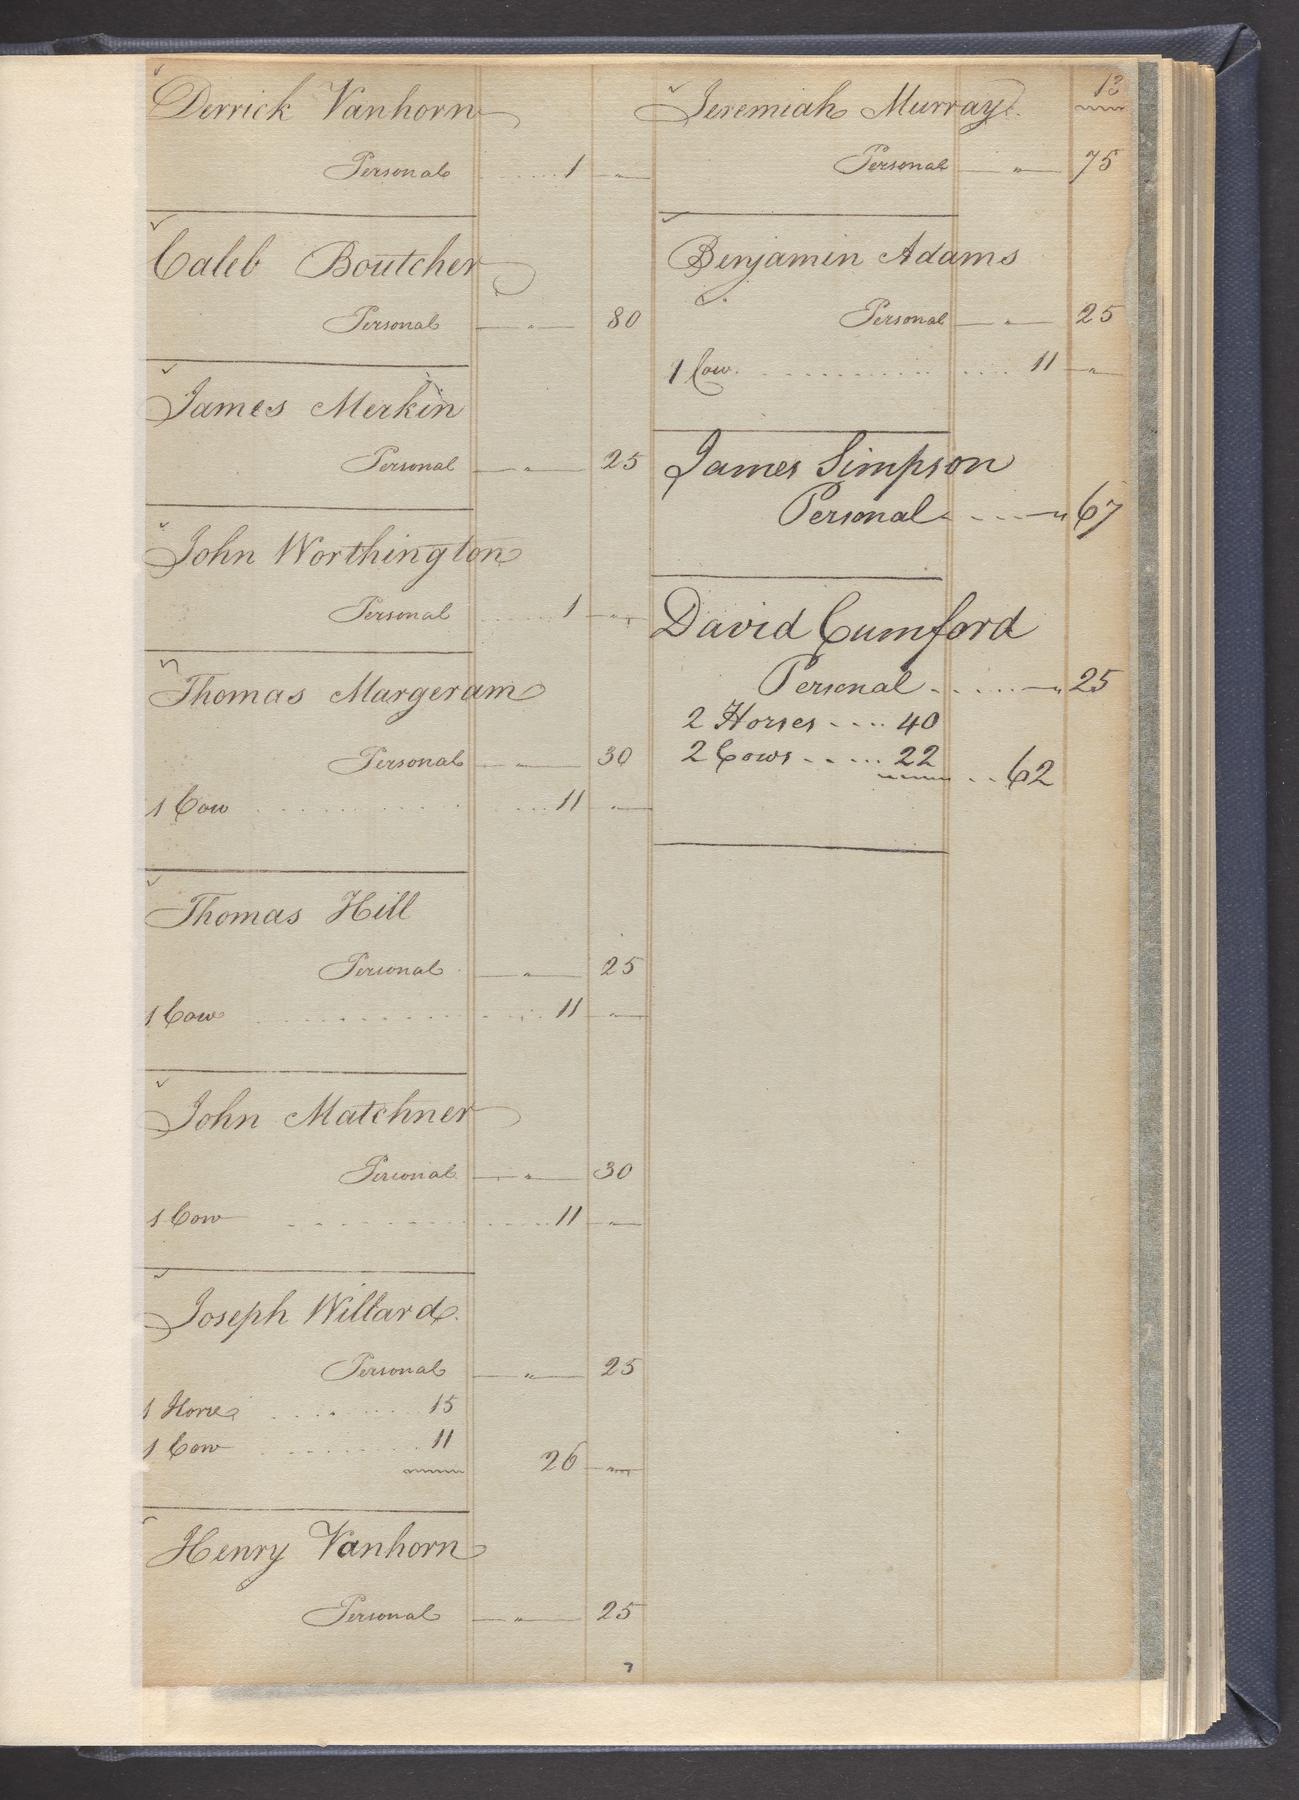 Derrick Vanhorn
Personal ..... 1 — " —
Caleb Boutcher
Personal — " — 80
James Merkin
Personal — " — 25
John Worthington
Personal ..... 1 — " —
Thomas Margeram
Personal — " — 30
1 Cow ..... 11 — " —
Thomas Hill
Personal — " — 25
1 Cow ..... 11 — " —
John Matchner
Personal — " — 30
1 Cow ..... 11 — " —
Joseph Willard
Personal — " — 25
1 Horse ..... 15
1 Cow ..... 11
26 — " —
Henry Vanhorn
Personal — " — 25
7
13
Jeremiah Murray
Personal — " — 75
Benjamin Adams
Personal — " — 25
1 Cow ..... 11 — " —
James Simpson
Personal ..... — " 67
David Cumford
Personal ..... — " 25
2 Horses .... 40
2 Cows ..... 22
.. 62